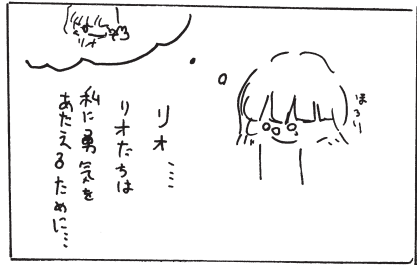 ほろり
リオ…
リオたちは
私に勇気を
あたえるために…
リオ